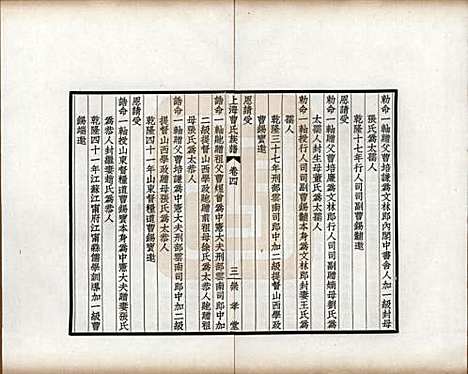 勅命一軸贈父曹培謙爲文林郎內閣中書舍人加一級封母
張氏爲太孺人
乾隆十七年行人司司副曹錫黼遵
恩請受
勅命一軸贈父曹培廉爲文林郎行人司司副贈嫡母劉氏爲
太孺人封生母董氏爲太孺人
勅命一軸授行人司司副曹錫黼本身爲文林郎封妻王氏爲
孺人
乾隆三十七年刑部雲南司郎中加二級提督山西學政
曹錫寶遵
恩請受
上海曹氏族譜 卷四 三 崇孝堂
誥命一軸貤贈祖父曹煜曾爲中憲大夫刑部雲南司郎中加
二級提督山西學政貤贈前祖母徐氏爲太恭人貤贈祖
母張氏爲太恭人
誥命一軸贈父曹培謙爲中憲大夫刑部雲南司郎中加二級
提督山西學政贈母張氏爲太恭人
乾隆四十一年山東督糧道曹錫寶遵
恩請受
誥命一軸授山東督糧道曹錫寶本身爲中憲大夫贈妻張氏
爲恭人封繼妻趙氏爲恭人
乾隆四十一年江蘇江甯府江甯縣儒學訓導加一級曹
錫端遵